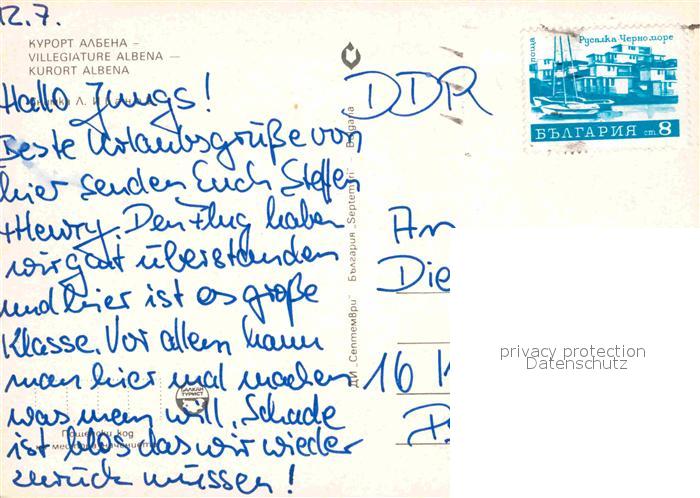 12.7.
КУРОРТ АЛБЕНА –
VILLEGIATURE ALBENA —
KURORT ALBENA
Hallo Jungs!
Beste Urlaubsgrüße von
hier senden Euch Steffen
+Henry. Den Flug haben
wir gut überstanden
und hier ist es große
Klasse. Vor allem kann
man hier mal machen
was man will. Schade
ist blos das wir wieder
zurück müssen!
БАЛКАН
ТУРИСТ
Пощенски код
местоназначението
ДИ „Септември" България „Septemvri" Bulgaria
DDR
поща
Русалка Черноморе
БЪЛГАРИЯ ст. 8
An
Die
16
privacy protection
Datenschutz